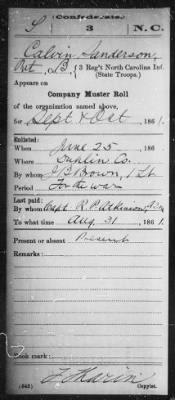 S Confederate.
3 N.C.
Calvin Sanderson
Pvt, Co. B, 3 Reg't North Carolina Inf.
(State Troops.)
Appears on
Company Muster Roll
of the organization named above,
for Sept & Oct, 1861.
Enlisted:
When June 25, 186
Where Duplin Co.
By whom Brown, 1 Lt
Period For the war
Last paid:
By whom Capt R. P. Atkinson,
To what time Aug. 31, 1861.
Present or absent Present
Remarks:
Book mark:
(642) Copyist.